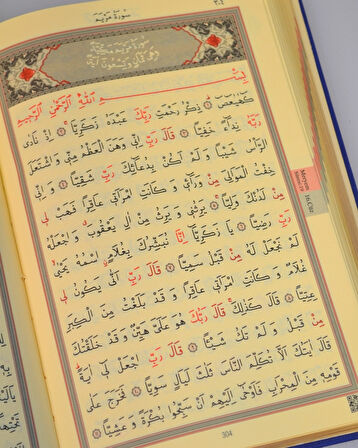 سورة مريم
٣٠٤
سُورَةُ مَرْيَمَ مَكِّيَّةٌ
وَهِيَ ثَمَانٍ وَتِسْعُونَ اٰيَةً
بِسْمِ اللّٰهِ الرَّحْمٰنِ الرَّحِيمِ
كٓهٰيٰعٓصٓ ﴿١﴾ ذِكْرُ رَحْمَتِ رَبِّكَ عَبْدَهُ زَكَرِيَّا ﴿٢﴾ اِذْ نَادٰى
رَبَّهُ نِدَٓاءً خَفِيًّا ﴿٣﴾ قَالَ رَبِّ اِنِّي وَهَنَ الْعَظْمُ مِنِّي وَاشْتَعَلَ
الرَّأْسُ شَيْبًا وَلَمْ اَكُنْ بِدُعَٓائِكَ رَبِّ شَقِيًّا ﴿٤﴾ وَاِنِّي
خِفْتُ الْمَوَالِيَ مِنْ وَرَٓائِي وَكَانَتِ امْرَاَتِي عَاقِرًا فَهَبْ لِي
مِنْ لَدُنْكَ وَلِيًّا ﴿٥﴾ يَرِثُنِي وَيَرِثُ مِنْ اٰلِ يَعْقُوبَ وَاجْعَلْهُ
رَبِّ رَضِيًّا ﴿٦﴾ يَا زَكَرِيَّٓا اِنَّا نُبَشِّرُكَ بِغُلَامٍ اسْمُهُ يَحْيٰى
لَمْ نَجْعَلْ لَهُ مِنْ قَبْلُ سَمِيًّا ﴿٧﴾ قَالَ رَبِّ اَنّٰى يَكُونُ لِي
غُلَامٌ وَكَانَتِ امْرَاَتِي عَاقِرًا وَقَدْ بَلَغْتُ مِنَ الْكِبَرِ
عِتِيًّا ﴿٨﴾ قَالَ كَذٰلِكَ قَالَ رَبُّكَ هُوَ عَلَيَّ هَيِّنٌ وَقَدْ خَلَقْتُكَ
مِنْ قَبْلُ وَلَمْ تَكُ شَيْـًٔا ﴿٩﴾ قَالَ رَبِّ اجْعَلْ لِٓي اٰيَةً
قَالَ اٰيَتُكَ اَلَّا تُكَلِّمَ النَّاسَ ثَلٰثَ لَيَالٍ سَوِيًّا ﴿١٠﴾ فَخَرَجَ عَلٰى
قَوْمِهِ مِنَ الْمِحْرَابِ فَاَوْحٰٓى اِلَيْهِمْ اَنْ سَبِّحُوا بُكْرَةً وَعَشِيًّا ﴿١١﴾
304
Meryem
16.Cüz